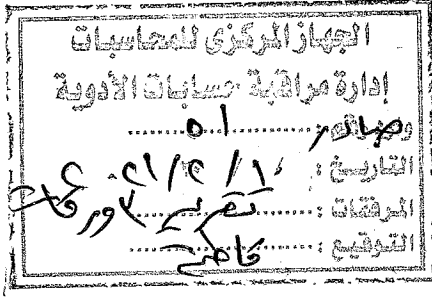 الجهاز المركزى للمحاسبات
إدارة مراقبة حسابات الأدوية
صادر : ٥١
التاريخ : ٢٠٢١/٢/١٠
المرفقات : تقرير
التوقيع :